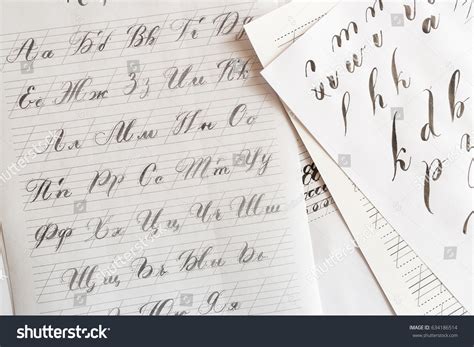 Аа Бб Вв Гг Дд
Ее Жж Зз Ии Кк
Лл Мм Нн Оо
Пп Рр Сс Тт Уу
Фф Хх Цц Чч
Щщ Ъъ Ыы Ьь
Яя
k
d b
k p
shutterstock
IMAGE ID: 634186514
www.shutterstock.com